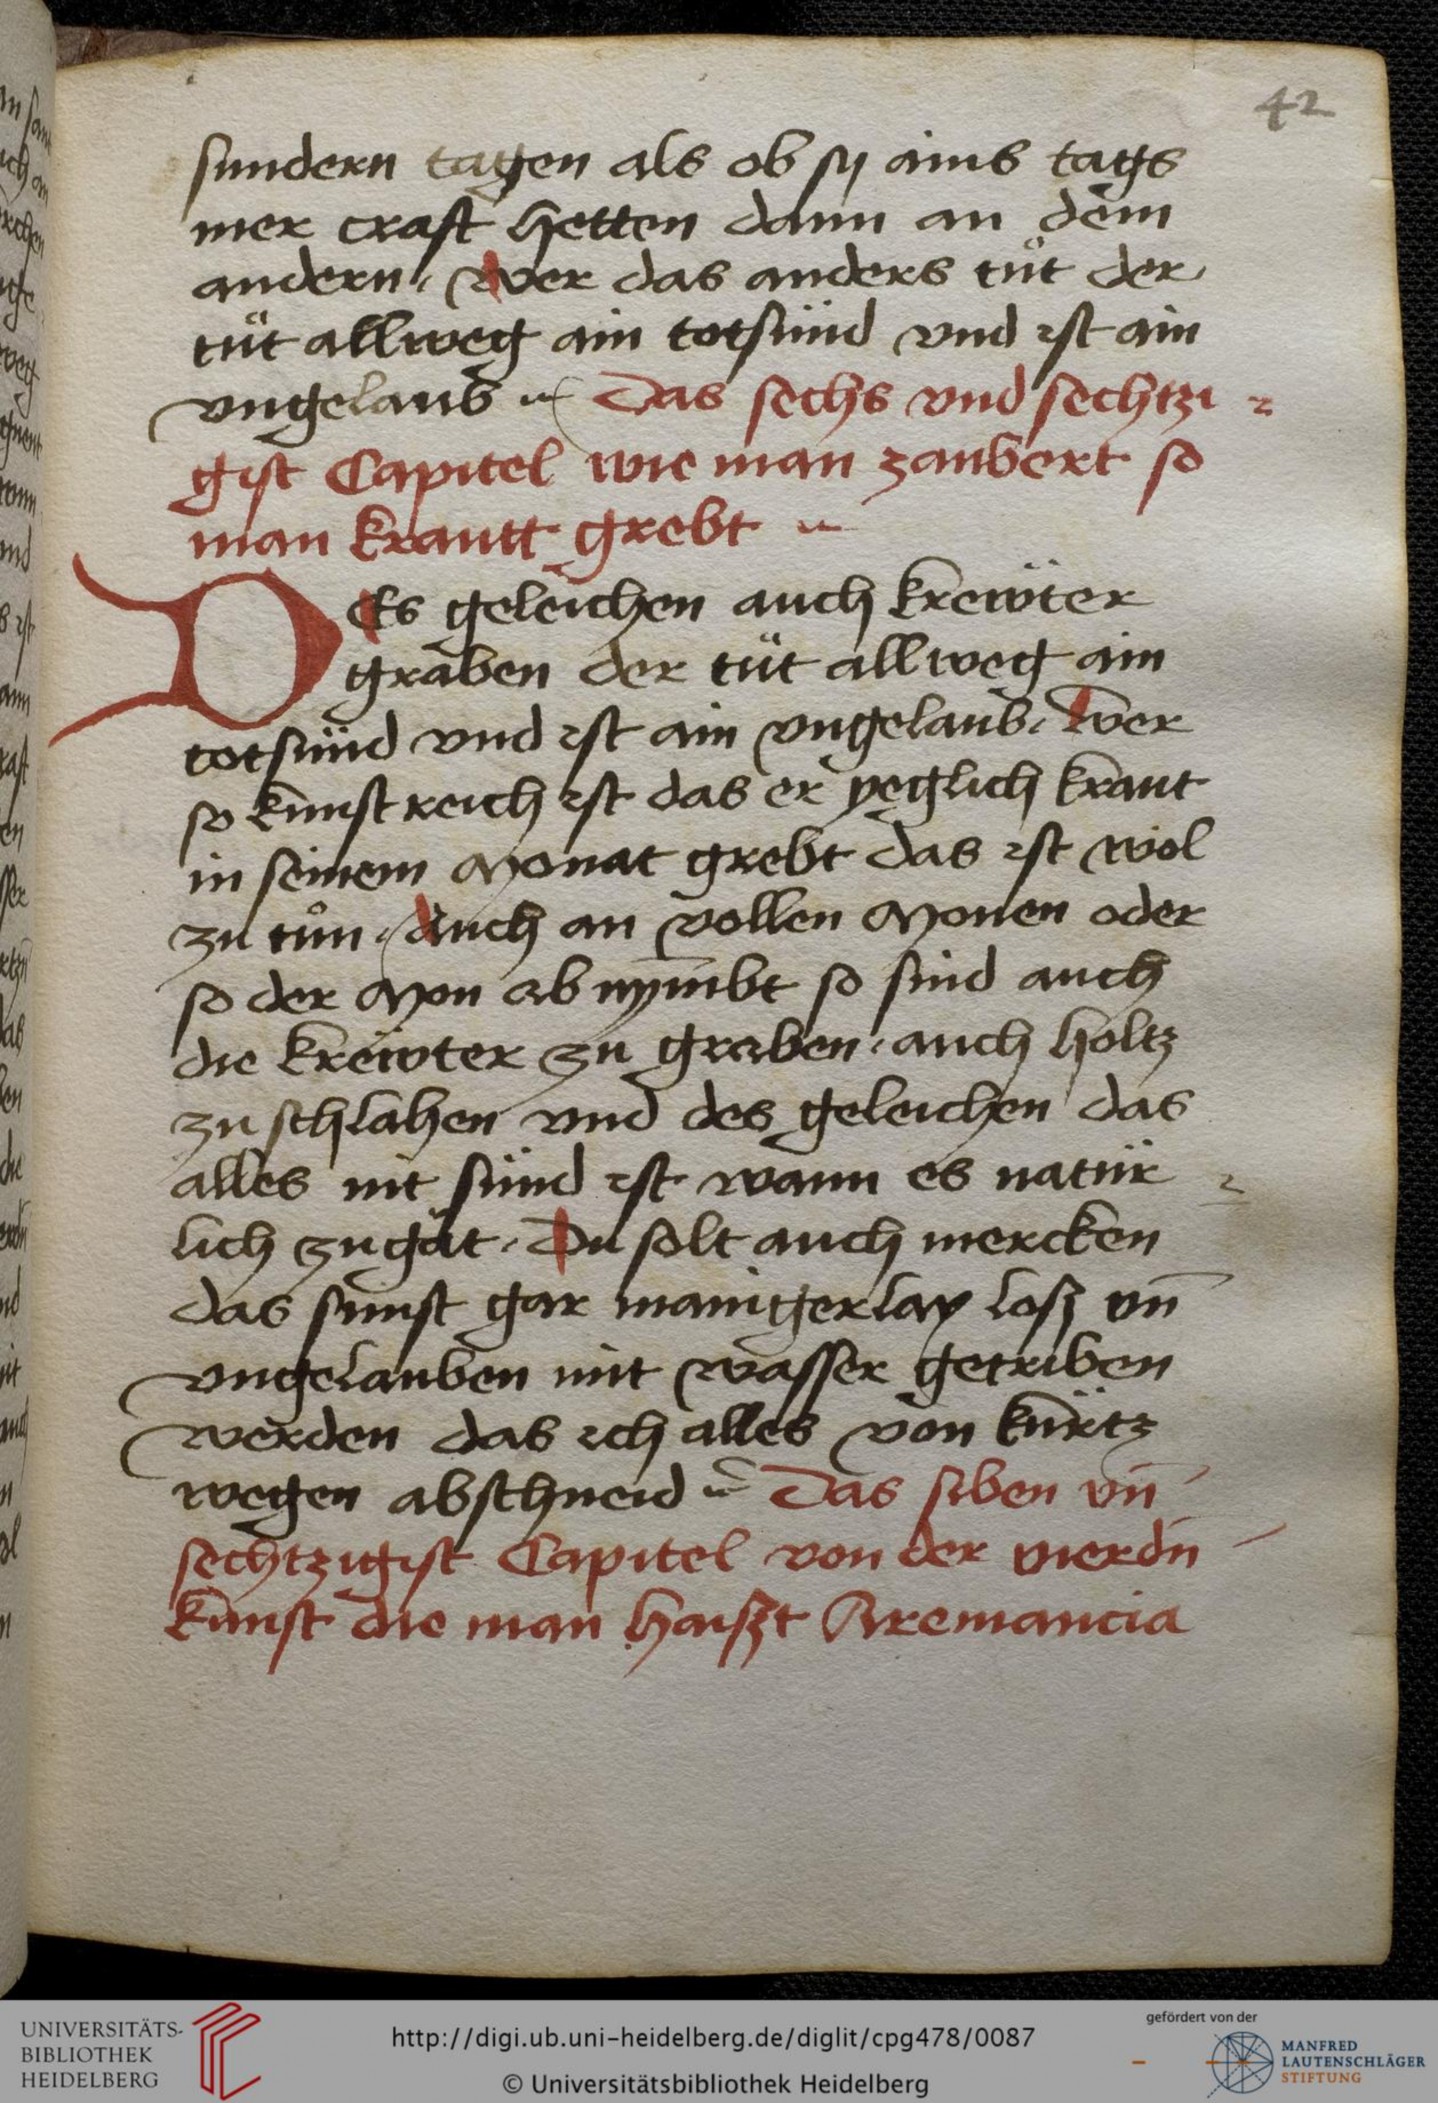 42
sundern tagen als ob sy ains tags
mer craft hetten dann an dem
andern, wer das anders tüt der
tüt allweg ain totsünd vnd ist ain
vngelaub Das sechs vnd sechtzi
gist Capitel wie man zaubert so
man krautt grebt
DEs geleichen auch krewter
graben der tüt allweg ain
totsünd vnd ist ain vngelaub. wer
so kunstreich ist das er yeglich kraut
in seinem Monat grebt das ist wol
zu tůn. Auch an vollen Monen oder
so der Mon ab nymbt so sind auch
die krewter zu graben. auch holtz
zu schlahen vnd des geleichen das
alles nit sünd ist wann es natür
lich zu gät. Du solt auch mercken
das sunst gar manigerlay losz vn̄
vngelauben mit wasser getriben
werden das ich alles von kürtz
wegen abschneid Das siben vn̄
sechtzigist Capitel von der vierdn̄
kunst die man haiszt Aremancia
UNIVERSITÄTS-
BIBLIOTHEK
HEIDELBERG
http://digi.ub.uni-heidelberg.de/diglit/cpg478/0087
© Universitätsbibliothek Heidelberg
gefördert von der
MANFRED
LAUTENSCHLÄGER
STIFTUNG